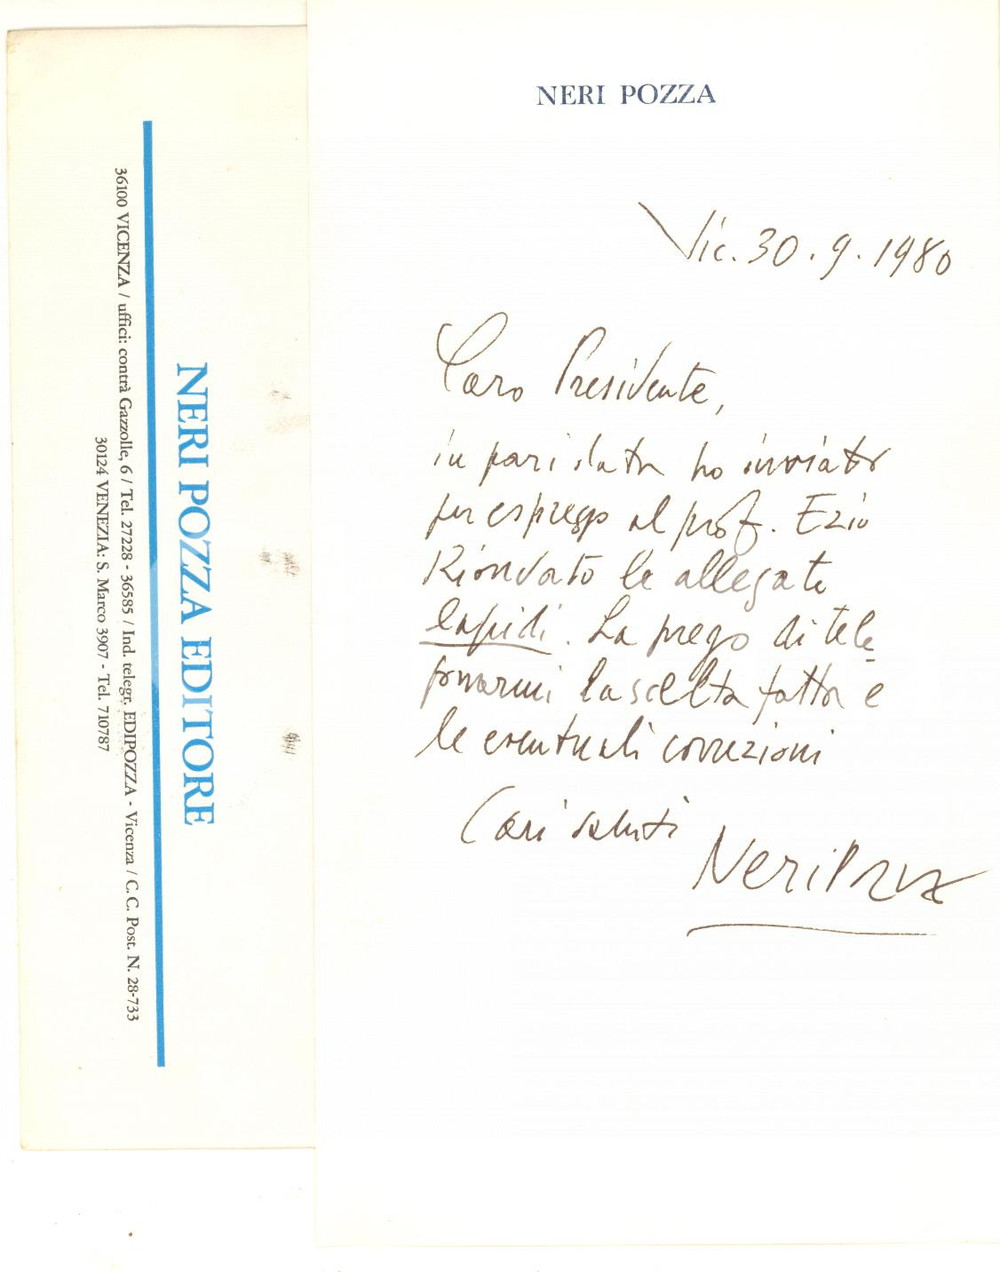 NERI POZZA EDITORE
36100 VICENZA / uffici: contrà Gazzolle, 6 / Tel. 27228 - 36585 / Ind. telegr. EDIPOZZA - Vicenza / C.C. Post. N. 28-733
30124 VENEZIA: S. Marco 3907 - Tel. 710787
NERI POZZA
Vic. 30.9.1980
Caro Presidente,
in pari data ho inviato
per espresso al prof. Ezio
Riondato le allegate
lapidi. La prego di tele-
fonarmi la scelta fatta e
le eventuali correzioni
Cari saluti
Neri Pozza